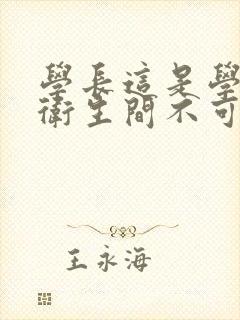 學長這是學
衛生間不可
王永海